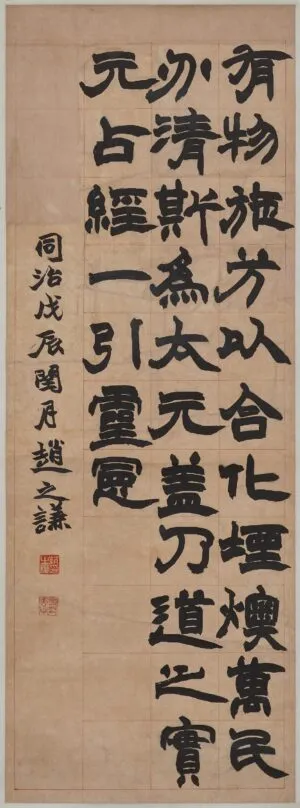 有物施方以合化堙燠萬民
清斯為太元盖乃道之實
元占經一引靈憲
同治戊辰閏月趙之謙